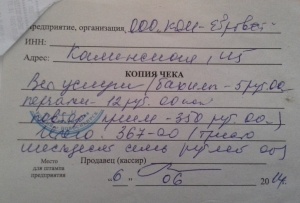 Предприятие, организация ООО
ИНН:
Адрес: Каменская,
КОПИЯ ЧЕКА
Вет услуги (бахилы - 5 руб 00
перчатки - 12 руб. 00 коп
повтор. прием - 350 руб. 00
Итого: 367-00 (Триста
шестьдесят семь рублей 00)
Место
для штампа
предприятия
Продавец (кассир)
"6" 06 20